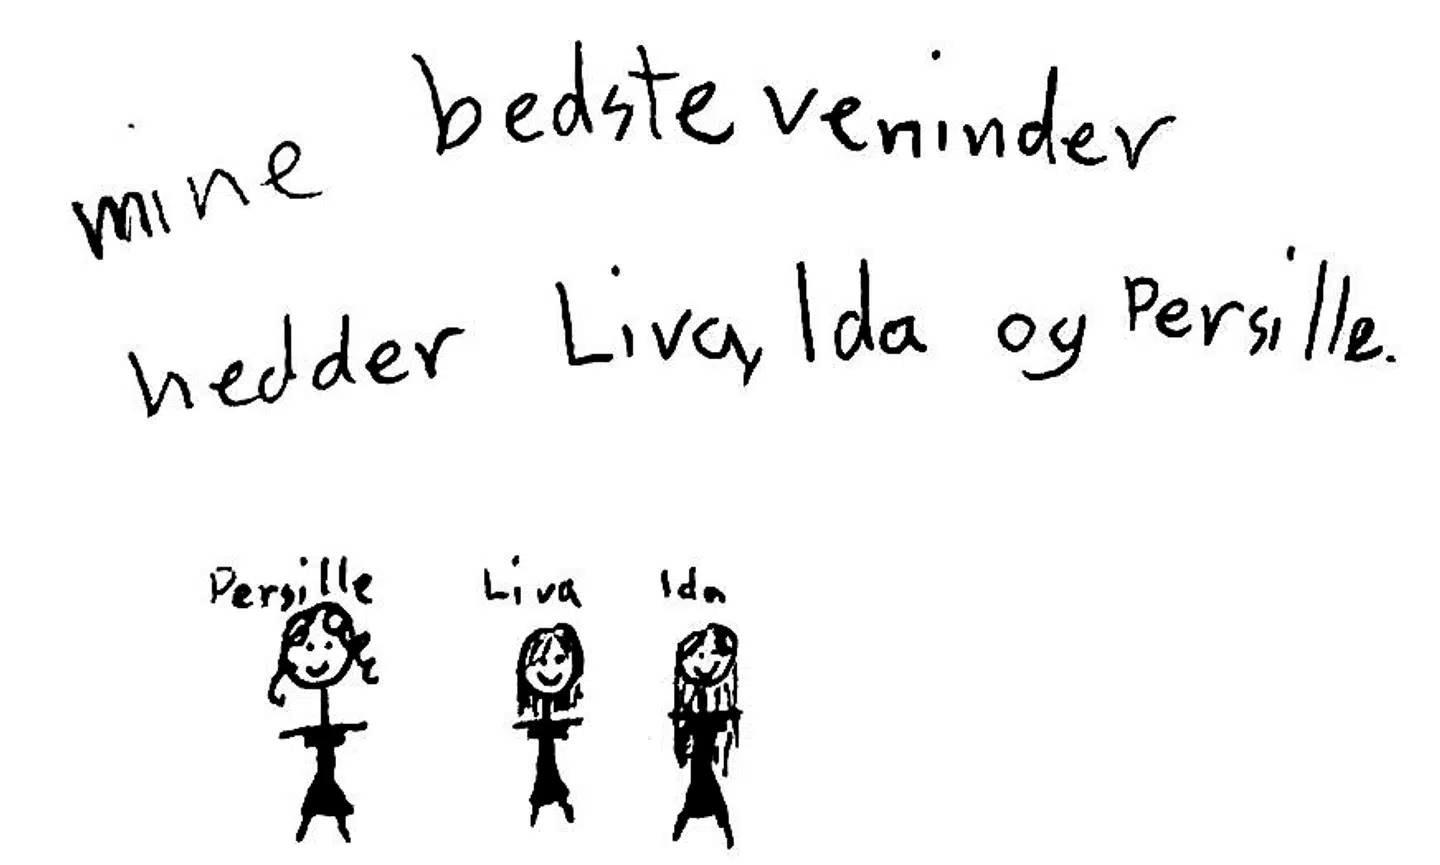 mine bedste veninder
hedder Liva, Ida og Persille.
Persille Liva Ida